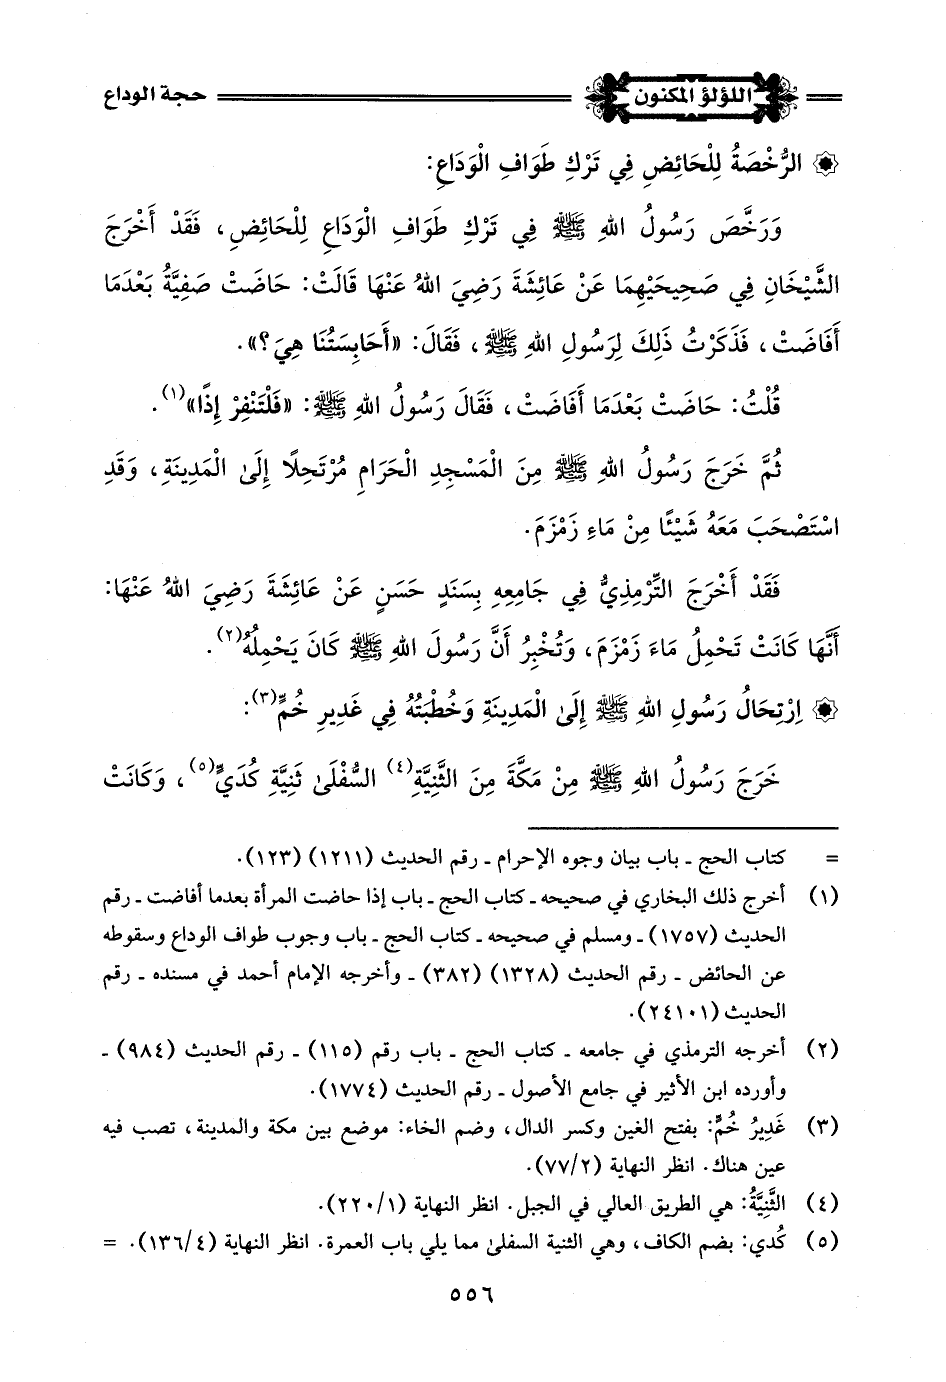 اللؤلؤ المكنون حجة الوداع
۞ الرُّخْصَةُ لِلْحَائِضِ فِي تَرْكِ طَوَافِ الْوَدَاعِ:
وَرَخَّصَ رَسُولُ اللهِ ﷺ فِي تَرْكِ طَوَافِ الْوَدَاعِ لِلْحَائِضِ، فَقَدْ أَخْرَجَ
الشَّيْخَانِ فِي صَحِيحَيْهِمَا عَنْ عَائِشَةَ رَضِيَ اللهُ عَنْهَا قَالَتْ: حَاضَتْ صَفِيَّةُ بَعْدَمَا
أَفَاضَتْ، فَذَكَرْتُ ذَلِكَ لِرَسُولِ اللهِ ﷺ، فَقَالَ: «أَحَابِسَتُنَا هِيَ؟».
قُلْتُ: حَاضَتْ بَعْدَمَا أَفَاضَتْ، فَقَالَ رَسُولُ اللهِ ﷺ: «فَلْتَنْفِرْ إِذًا»(١).
ثُمَّ خَرَجَ رَسُولُ اللهِ ﷺ مِنَ الْمَسْجِدِ الْحَرَامِ مُرْتَحِلًا إِلَىٰ الْمَدِينَةِ، وَقَدِ
اسْتَصْحَبَ مَعَهُ شَيْئًا مِنْ مَاءِ زَمْزَمَ.
فَقَدْ أَخْرَجَ التِّرْمِذِيُّ فِي جَامِعِهِ بِسَنَدٍ حَسَنٍ عَنْ عَائِشَةَ رَضِيَ اللهُ عَنْهَا:
أَنَّهَا كَانَتْ تَحْمِلُ مَاءَ زَمْزَمَ، وَتُخْبِرُ أَنَّ رَسُولَ اللهِ ﷺ كَانَ يَحْمِلُهُ(٢).
۞ اِرْتِحَالُ رَسُولِ اللهِ ﷺ إِلَىٰ الْمَدِينَةِ وَخُطْبَتُهُ فِي غَدِيرِ خُمٍّ(٣):
خَرَجَ رَسُولُ اللهِ ﷺ مِنْ مَكَّةَ مِنَ الثَّنِيَّةِ(٤) السُّفْلَىٰ ثَنِيَّةِ كُدَيٍّ(٥)، وَكَانَتْ
= كتاب الحج - باب بيان وجوه الإحرام - رقم الحديث (١٢١١) (١٢٣).
(١) أخرج ذلك البخاري في صحيحه - كتاب الحج - باب إذا حاضت المرأة بعدما أفاضت - رقم
الحديث (١٧٥٧) - ومسلم في صحيحه - كتاب الحج - باب وجوب طواف الوداع وسقوطه
عن الحائض - رقم الحديث (١٣٢٨) (٣٨٢) - وأخرجه الإمام أحمد في مسنده - رقم
الحديث (٢٤١٠١).
(٢) أخرجه الترمذي في جامعه - كتاب الحج - باب رقم (١١٥) - رقم الحديث (٩٨٤) -
وأورده ابن الأثير في جامع الأصول - رقم الحديث (١٧٧٤).
(٣) غَدِيرُ خُمٍّ: بفتح الغين وكسر الدال، وضم الخاء: موضع بين مكة والمدينة، تصب فيه
عين هناك. انظر النهاية (٧٧/٢).
(٤) الثَّنِيَّةُ: هي الطريق العالي في الجبل. انظر النهاية (٢٢٠/١).
(٥) كُدي: بضم الكاف، وهي الثنية السفلىٰ مما يلي باب العمرة. انظر النهاية (١٣٦/٤). =
٥٥٦